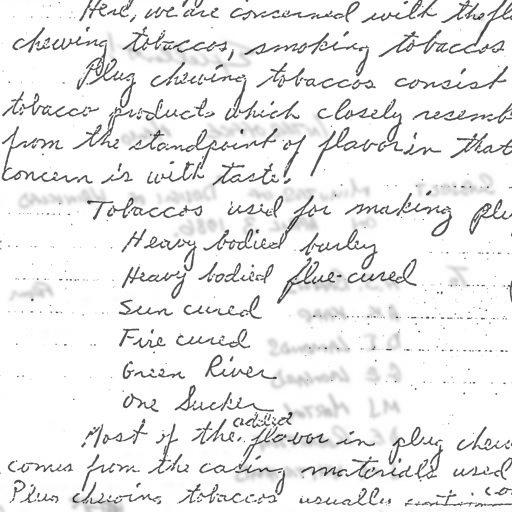 Here, we are concerned with the fl
chewing tobaccos, smoking tobaccos
Plug chewing tobaccos consist
tobacco products which closely resemb
from the standpoint of flavor in that
concern is with taste.
Tobaccos used for making plu
Heavy bodied burley
Heavy bodied flue-cured
Sun cured
Fire cured
Green River
One Sucker
added
Most of the flavor in plug chew
comes from the casing materials used
Plug chewing tobaccos usually